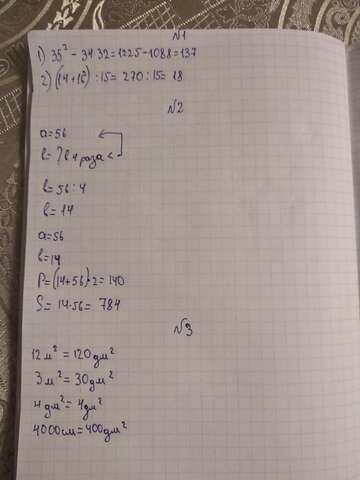 №1
1) 35² - 34·32=1225-1088=137
2) (14+16²):15=270:15=18
№2
a=56
b=? в 4 раза <
b=56:4
b=14
a=56
b=14
P=(14+56)·2=140
S=14·56=784
№3
12м²=120дм²
3м²=30дм²
4дм²=4дм²
4000см=400дм²